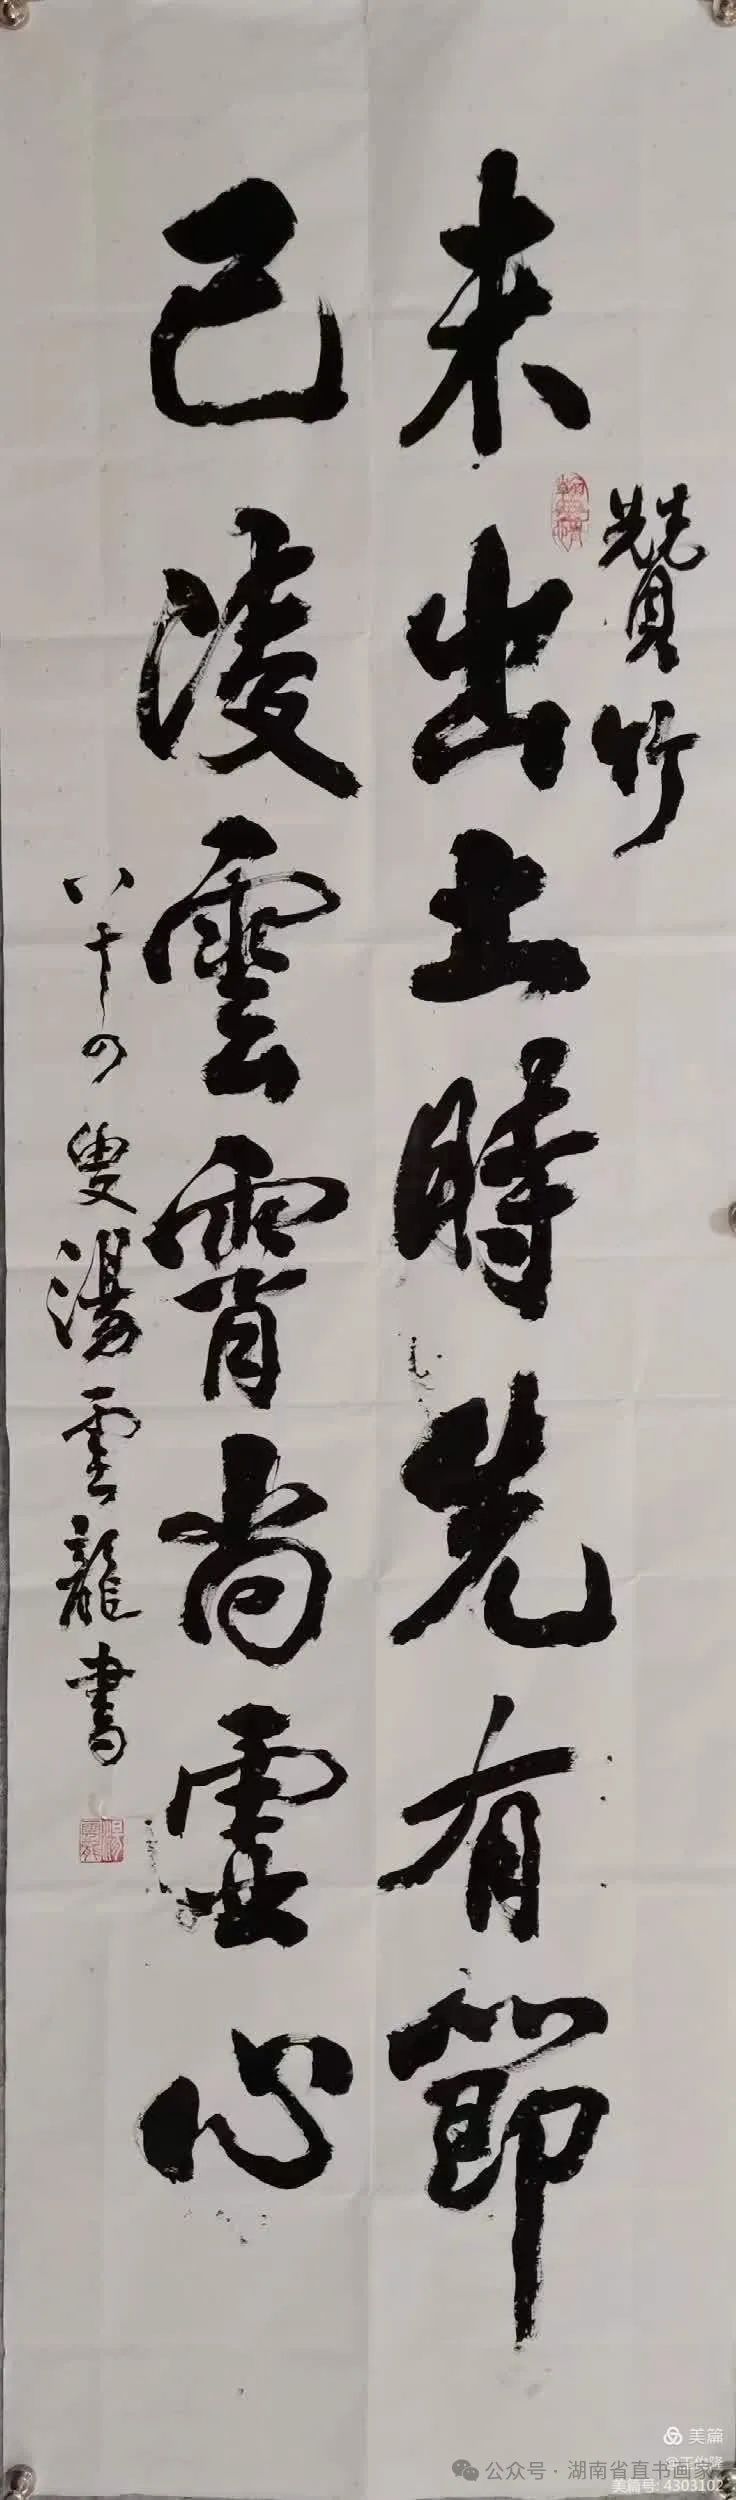 贊竹
未出土時先有節
已凌雲霄尚虛心
八十四叟湯雲龍書
美篇
公众号·湖南省直书画家
美篇号: 4303102